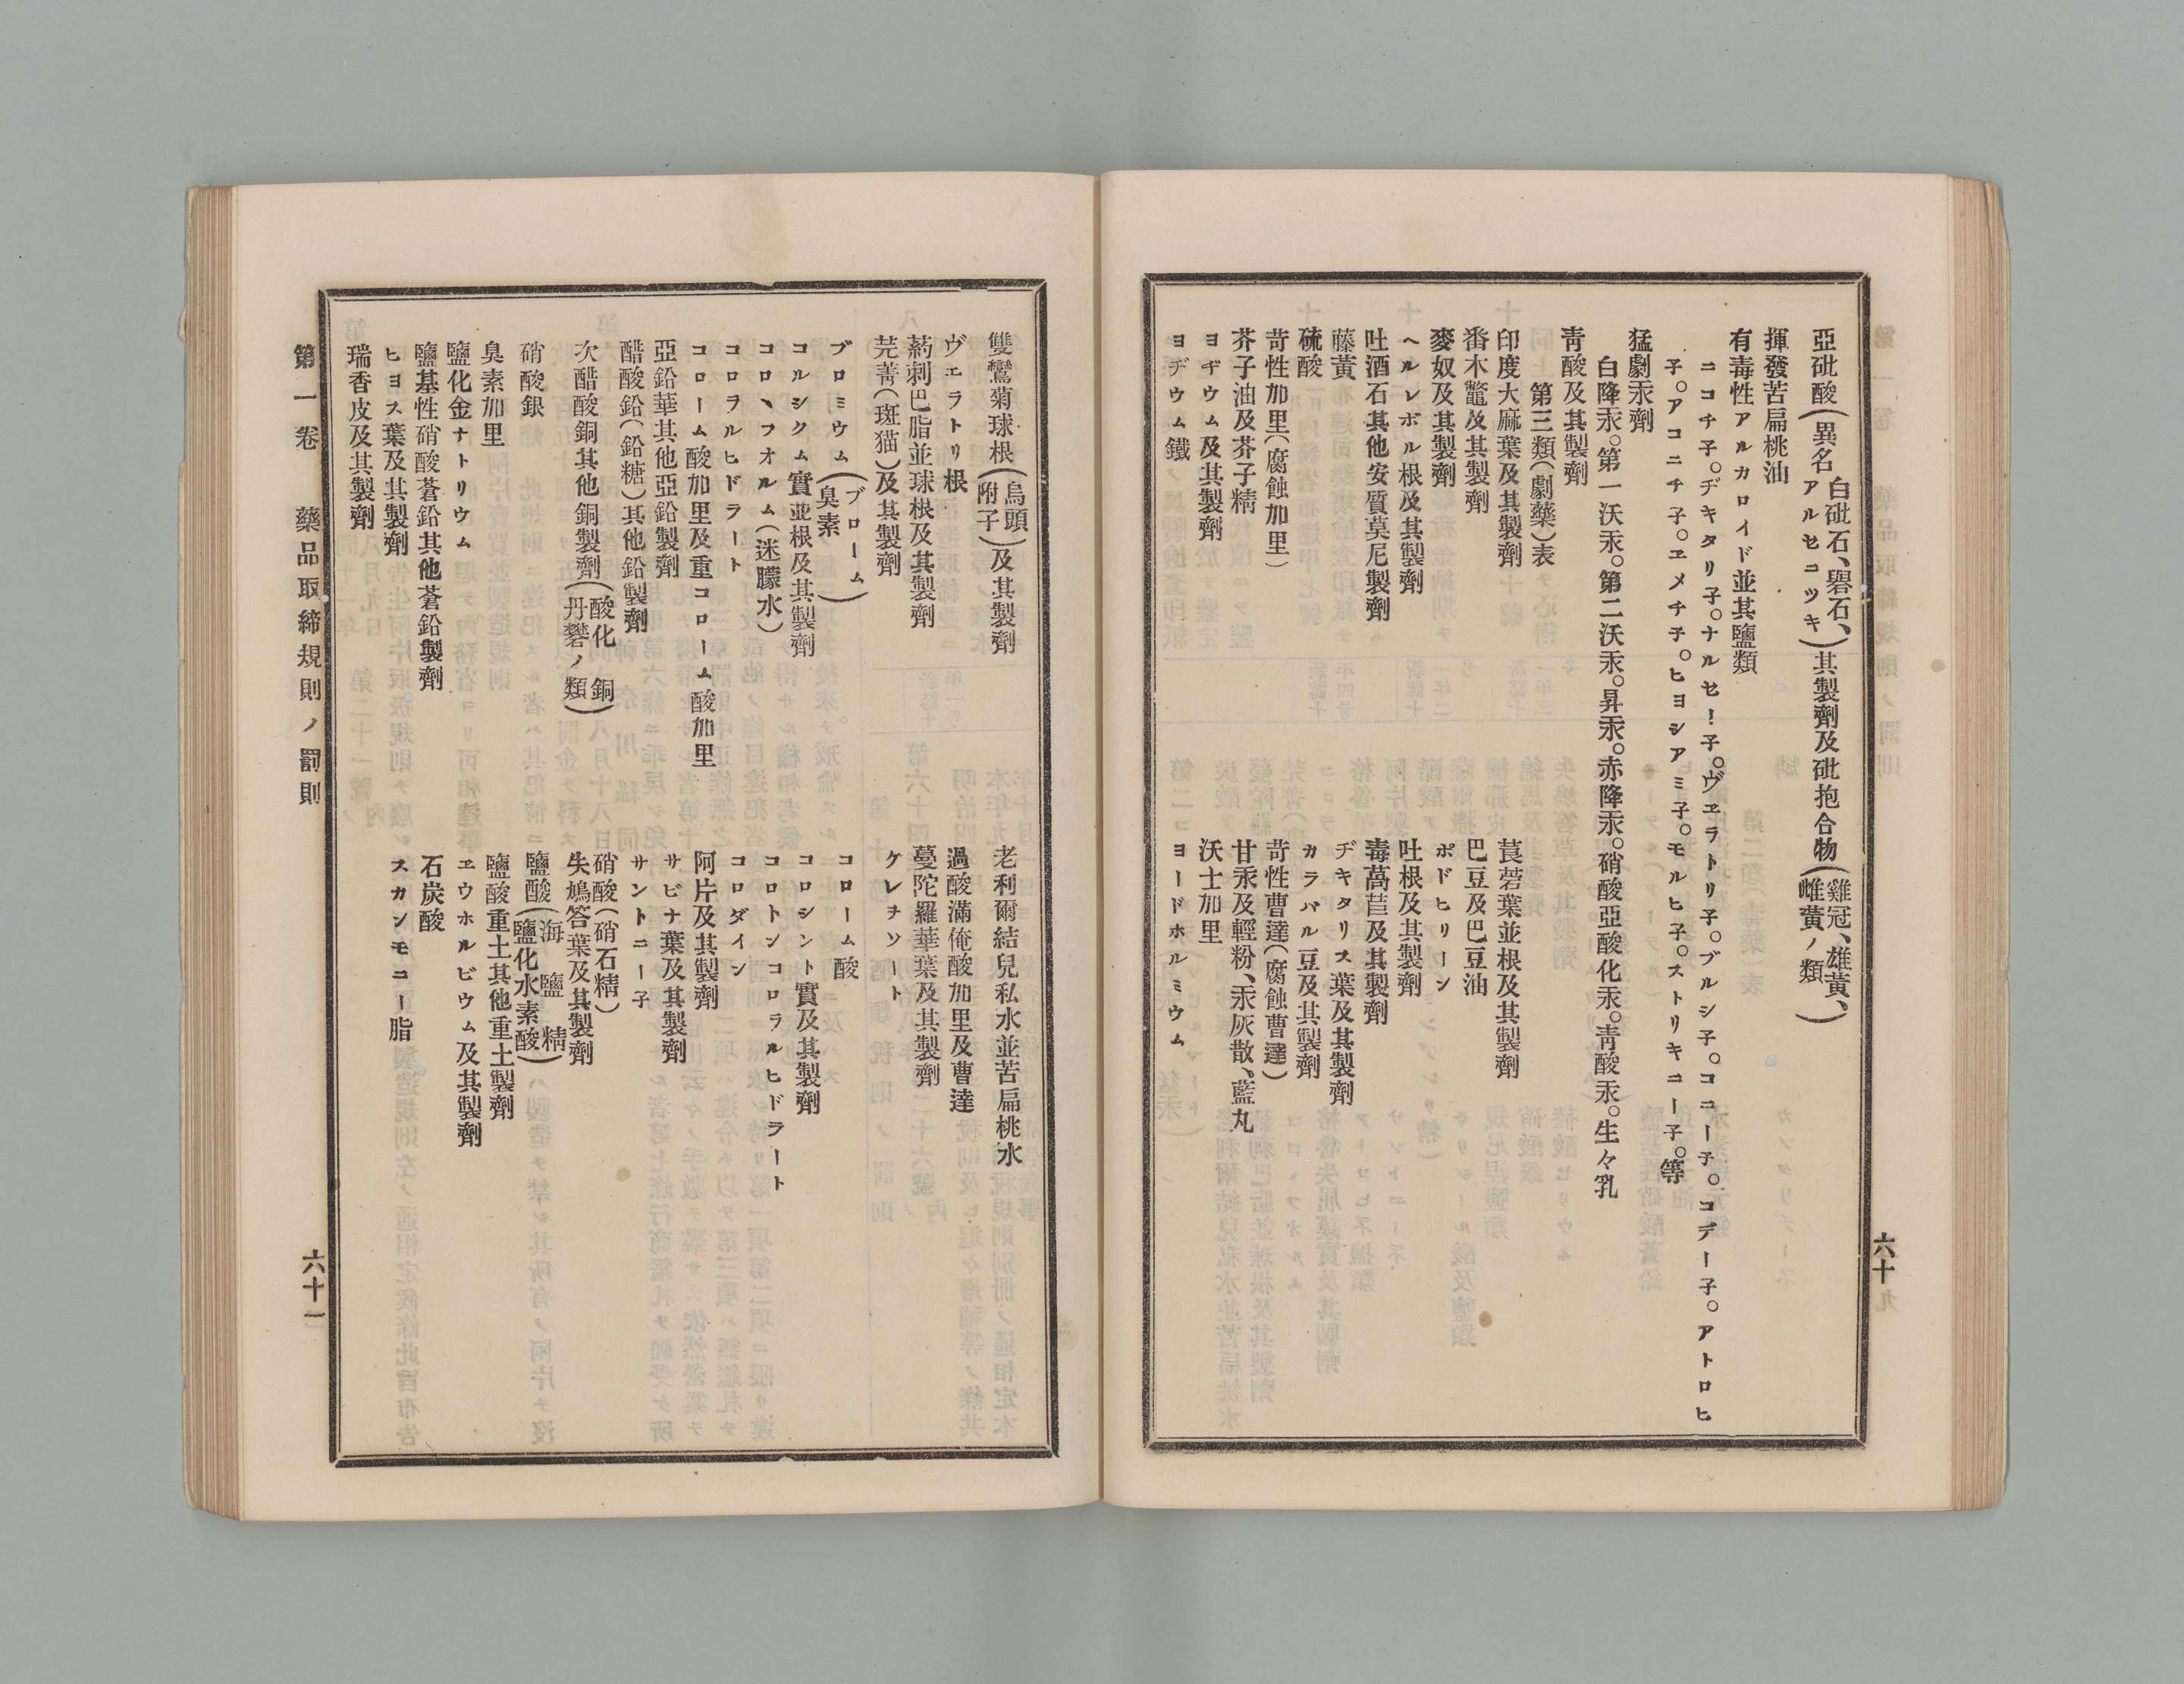 亞砒酸(異名白砒石、礜石、アルセニツキ)其製劑及砒抱合物(雞冠、雄黃、雌黃ノ類)
揮發苦扁桃油
有毒性アルカロイド並其鹽類
ニコチ子。ヂキタリ子。ナルセー子。ヴエラトリ子。ブルシ子。コニー子。コデー子。アトロヒ
子。アコニチ子。エメチ子。ヒヨシアミ子。モルヒ子。ストリキニー子。等
猛劇汞劑
白降汞。第一沃汞。第二沃汞。昇汞。赤降汞。硝酸亞酸化汞。靑酸汞。生々乳
靑酸及其製劑
第三類(劇藥)表
印度大麻葉及其製劑
莨菪葉並根及其製劑
番木鼈及其製劑
巴豆及巴豆油
麥奴及其製劑
ポドヒリーン
ヘルレボル根及其製劑
吐根及其製劑
吐酒石其他安質莫尼製劑
毒萵苣及其製劑
藤黃
ヂキタリス葉及其製劑
硫酸
カラバル豆及其製劑
苛性加里(腐蝕加里)
苛性曹達(腐蝕曹達)
芥子油及芥子精
甘汞及輕粉、汞灰散、藍丸
ヨヂウム及其製劑
沃士加里
ヨヂウム鐵
ヨードホルミウム
六十
雙鸞菊球根(烏頭附子)及其製劑
老利爾結兒私水並苦扁桃水
ヴエラトリ根
過酸滿俺酸加里及曹達
葯刺巴脂並球根及其製劑
蔓陀羅華葉及其製劑
芫菁(斑猫)及其製劑
ケレヲソート
ブロミウム(ブローム臭素)
コローム酸
コルシクム實並根及其製劑
コロシント實及其製劑
コロヽフオルム(迷朦水)
コロトンコロラルヒドラート
コロラルヒドラート
コロダイン
コローム酸加里及重コローム酸加里
阿片及其製劑
亞鉛華其他亞鉛製劑
サビナ葉及其製劑
醋酸鉛(鉛糖)其他鉛製劑
サントニー子
次醋酸銅其他銅製劑(酸化銅丹礬ノ類)
硝酸(硝石精)
失鳩答葉及其製劑
硝酸銀
鹽酸(海鹽精鹽化水素酸)
臭素加里
鹽酸重土其他重土製劑
鹽化金ナトリウム
ヱウホルビウム及其製劑
鹽基性硝酸蒼鉛其他蒼鉛製劑
石炭酸
ヒヨス葉及其製劑
スカンモニー脂
瑞香皮及其製劑
第一卷　藥品取締規則ノ罰則
六十一